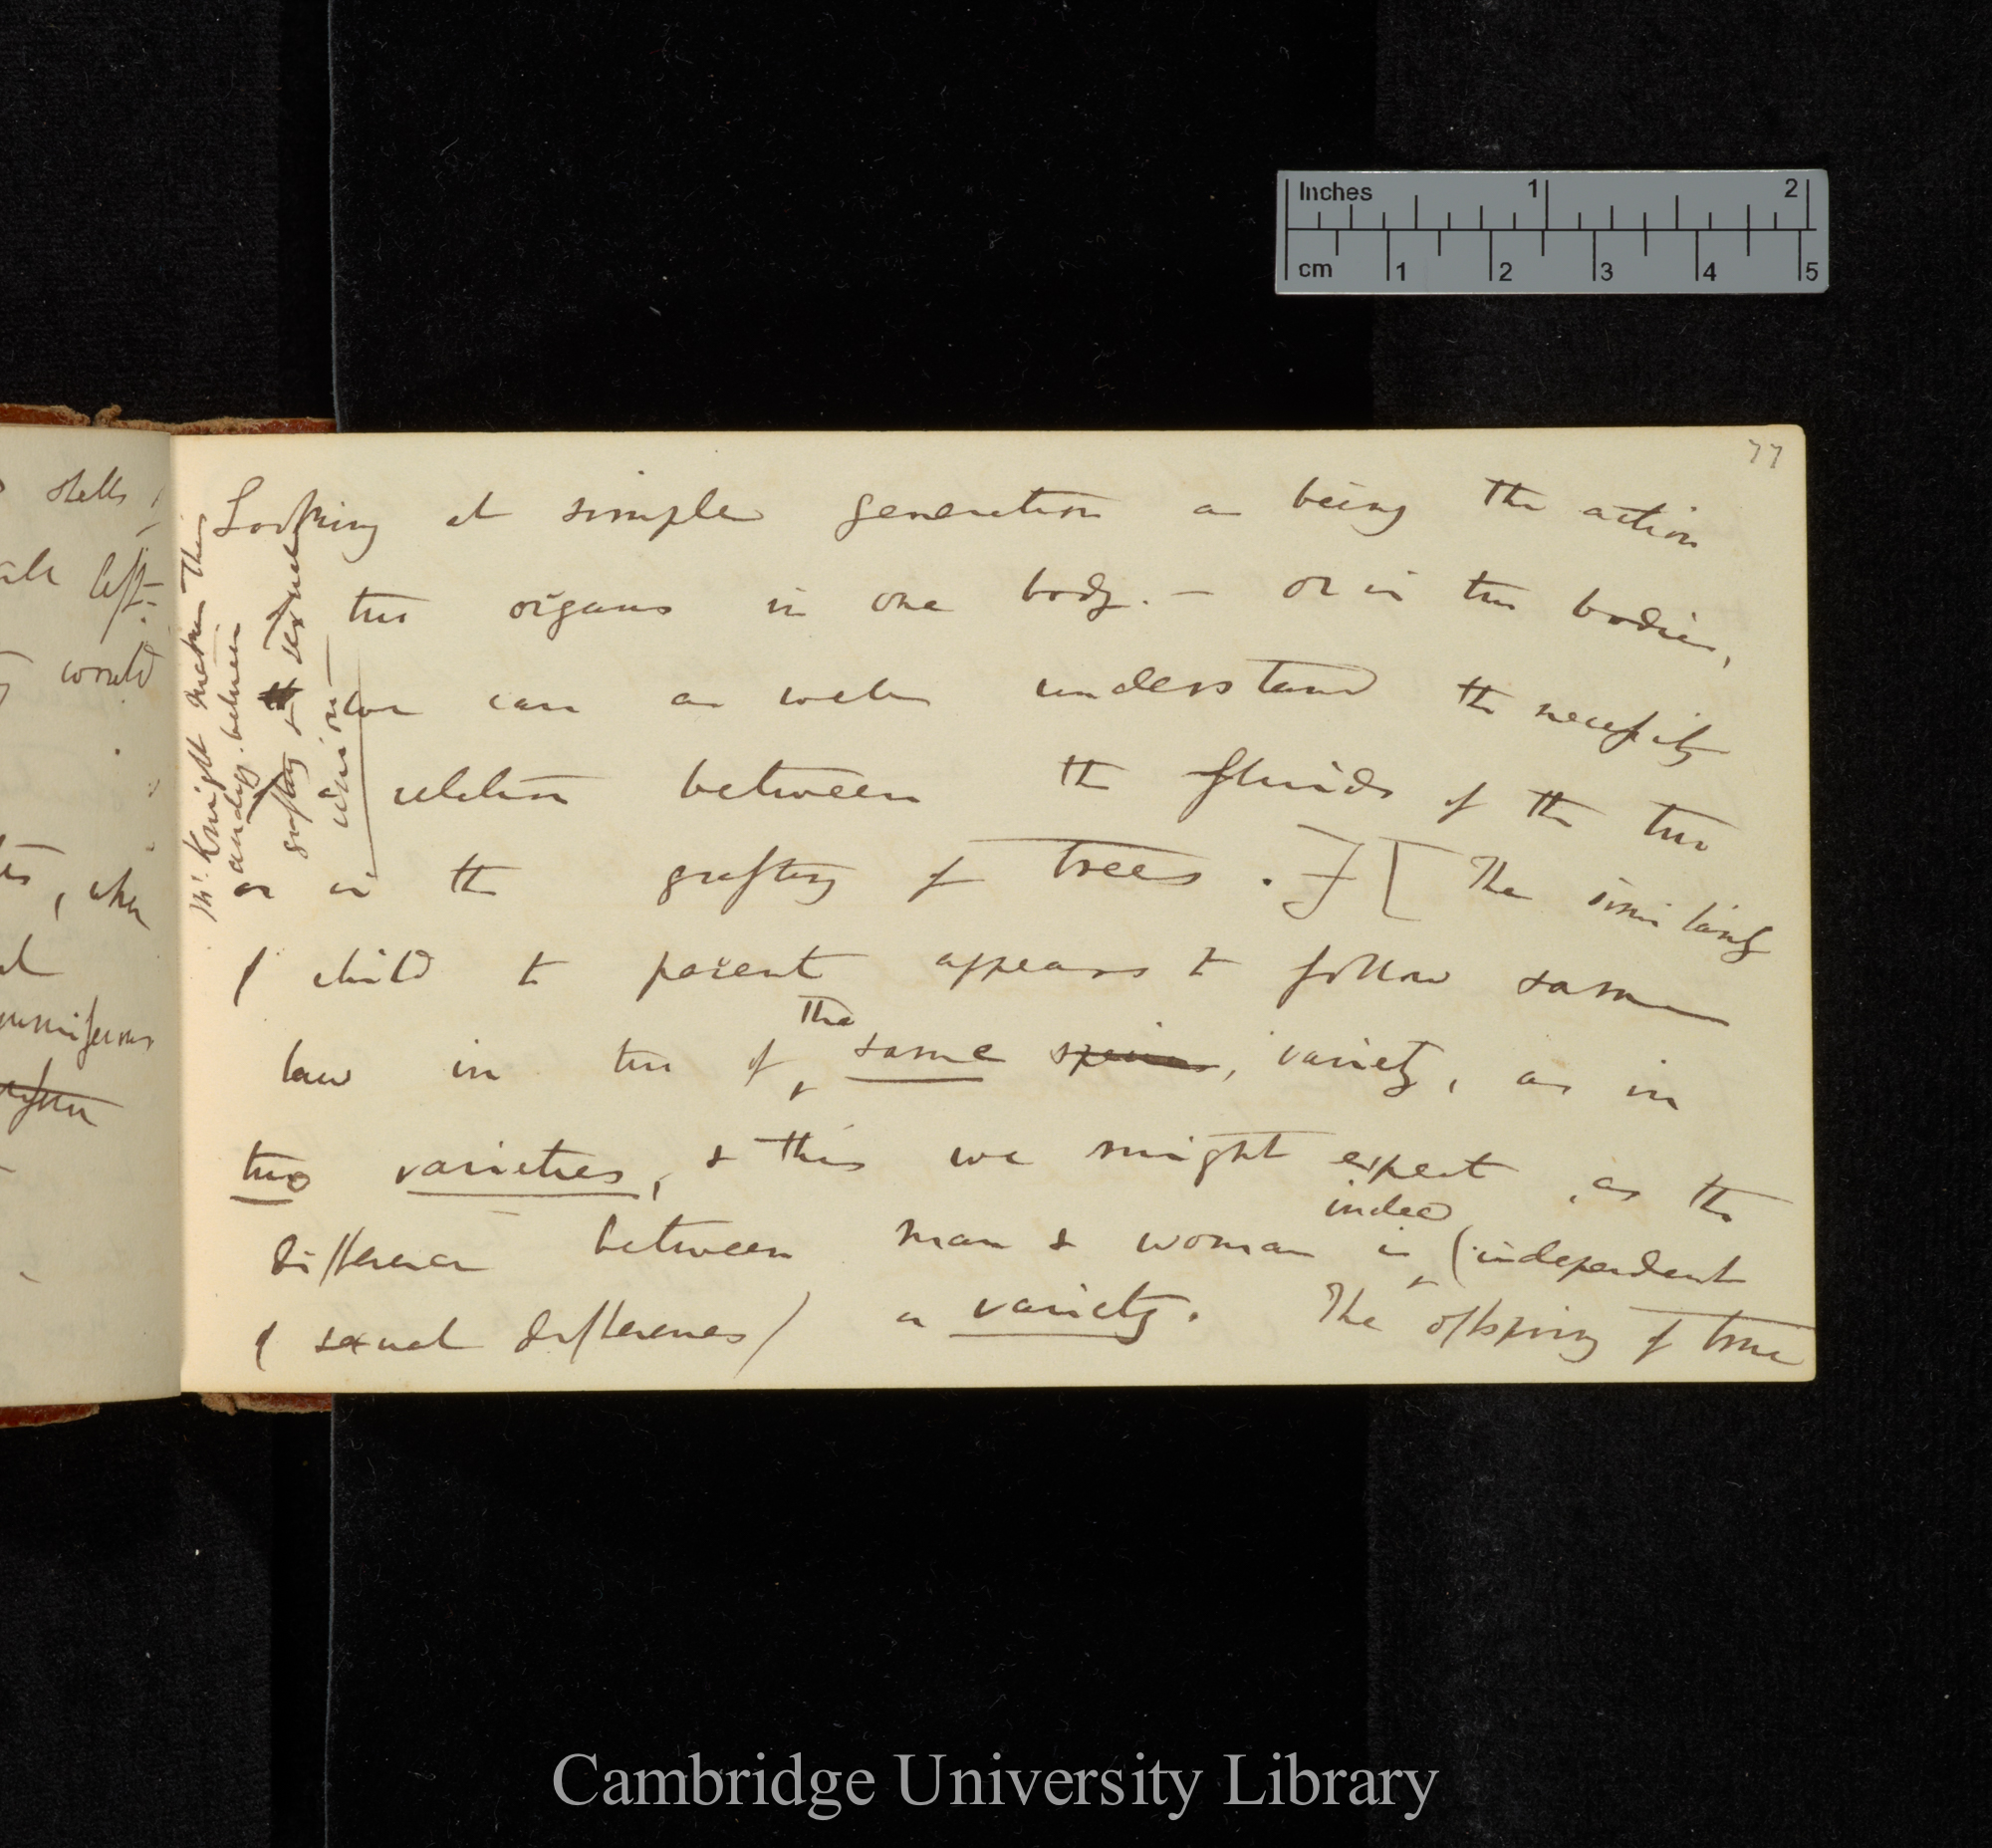 Inches 1 2
cm 1 2 3 4 5
77
shells
left
would
, when
Looking at simple generation as being the action
two organs in one body. — or in two bodies,
we can as well understand the necessity
a relation between the fluids of the two
as in the grafting of trees.] [The similarity
of child to parent appears to follow same
law in two of the same species, variety, as in
two varieties, & this we might expect, as the
difference between man & woman is indeed (independent
of sexual differences) a variety. The offspring of true
Mr. Knight makes this
analogy between
grafting & sexual
union
Cambridge University Library